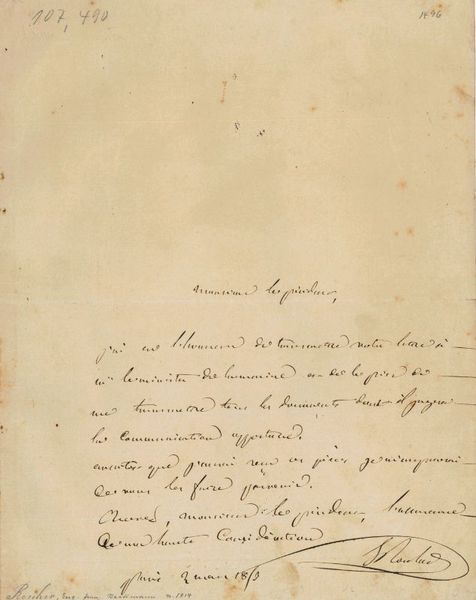 107,490
1896
Monsieur le président,
j'ai eu l'honneur de transmettre votre lettre à
m. le ministre de la marine en le priant de
me transmettre tous les documents dont il jugera
la communication opportune.
aussitôt que j'aurai reçu ces pièces je m'empresserai
de vous les faire parvenir.
Agréez, monsieur le président, l'assurance
de ma haute Considération
Paris 2 mars 18